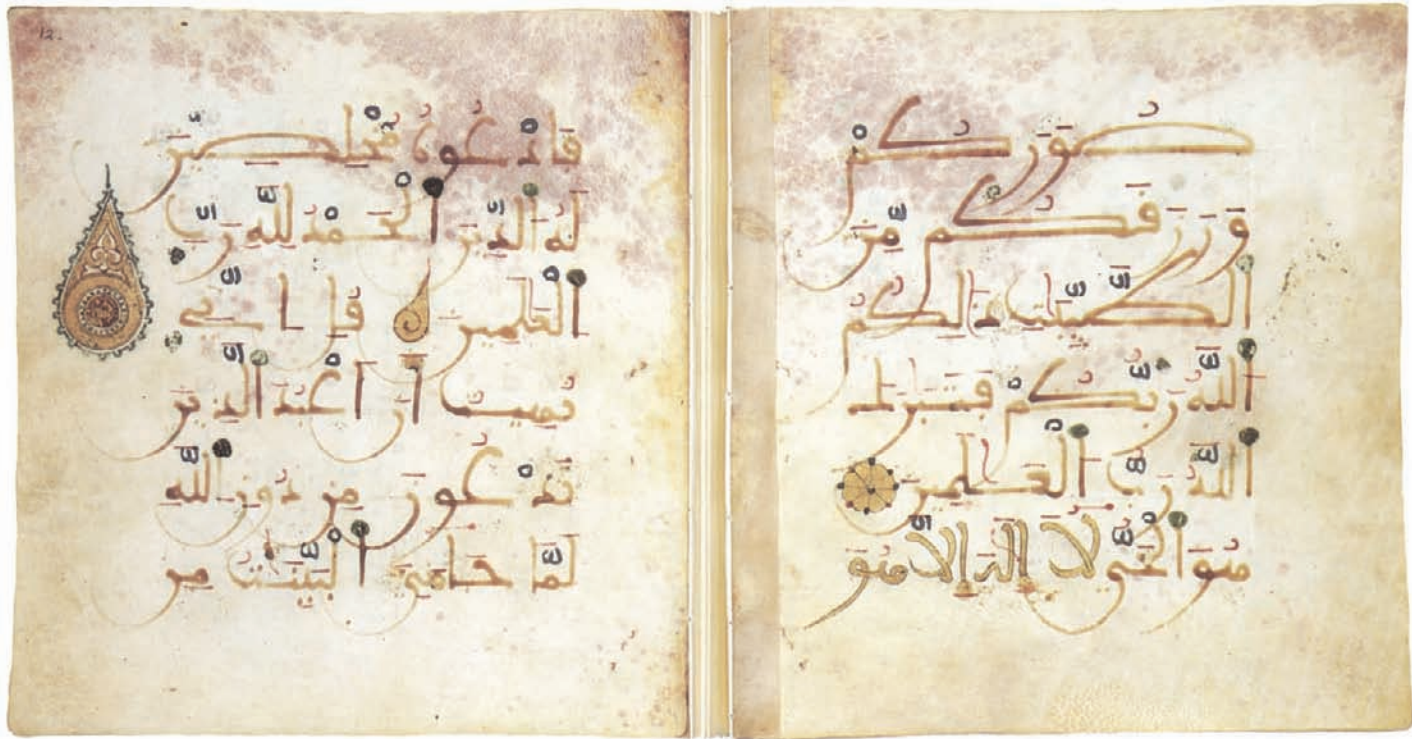 صُوَرَكُمْ
وَرَزَقَكُم مِّنَ
الطَّيِّبَٰتِ ذَٰلِكُمُ
اللَّهُ رَبُّكُمْ فَتَبَٰرَكَ
اللَّهُ رَبُّ الْعَٰلَمِينَ
هُوَ الْحَيُّ لَا إِلَٰهَ إِلَّا هُوَ
12.
فَادْعُوهُ مُخْلِصِينَ
لَهُ الدِّينَ الْحَمْدُ لِلَّهِ رَبِّ
الْعَٰلَمِينَ قُلْ إِنِّي
نُهِيتُ أَنْ أَعْبُدَ الَّذِينَ
تَدْعُونَ مِن دُونِ اللَّهِ
لَمَّا جَاءَنِيَ الْبَيِّنَٰتُ مِن